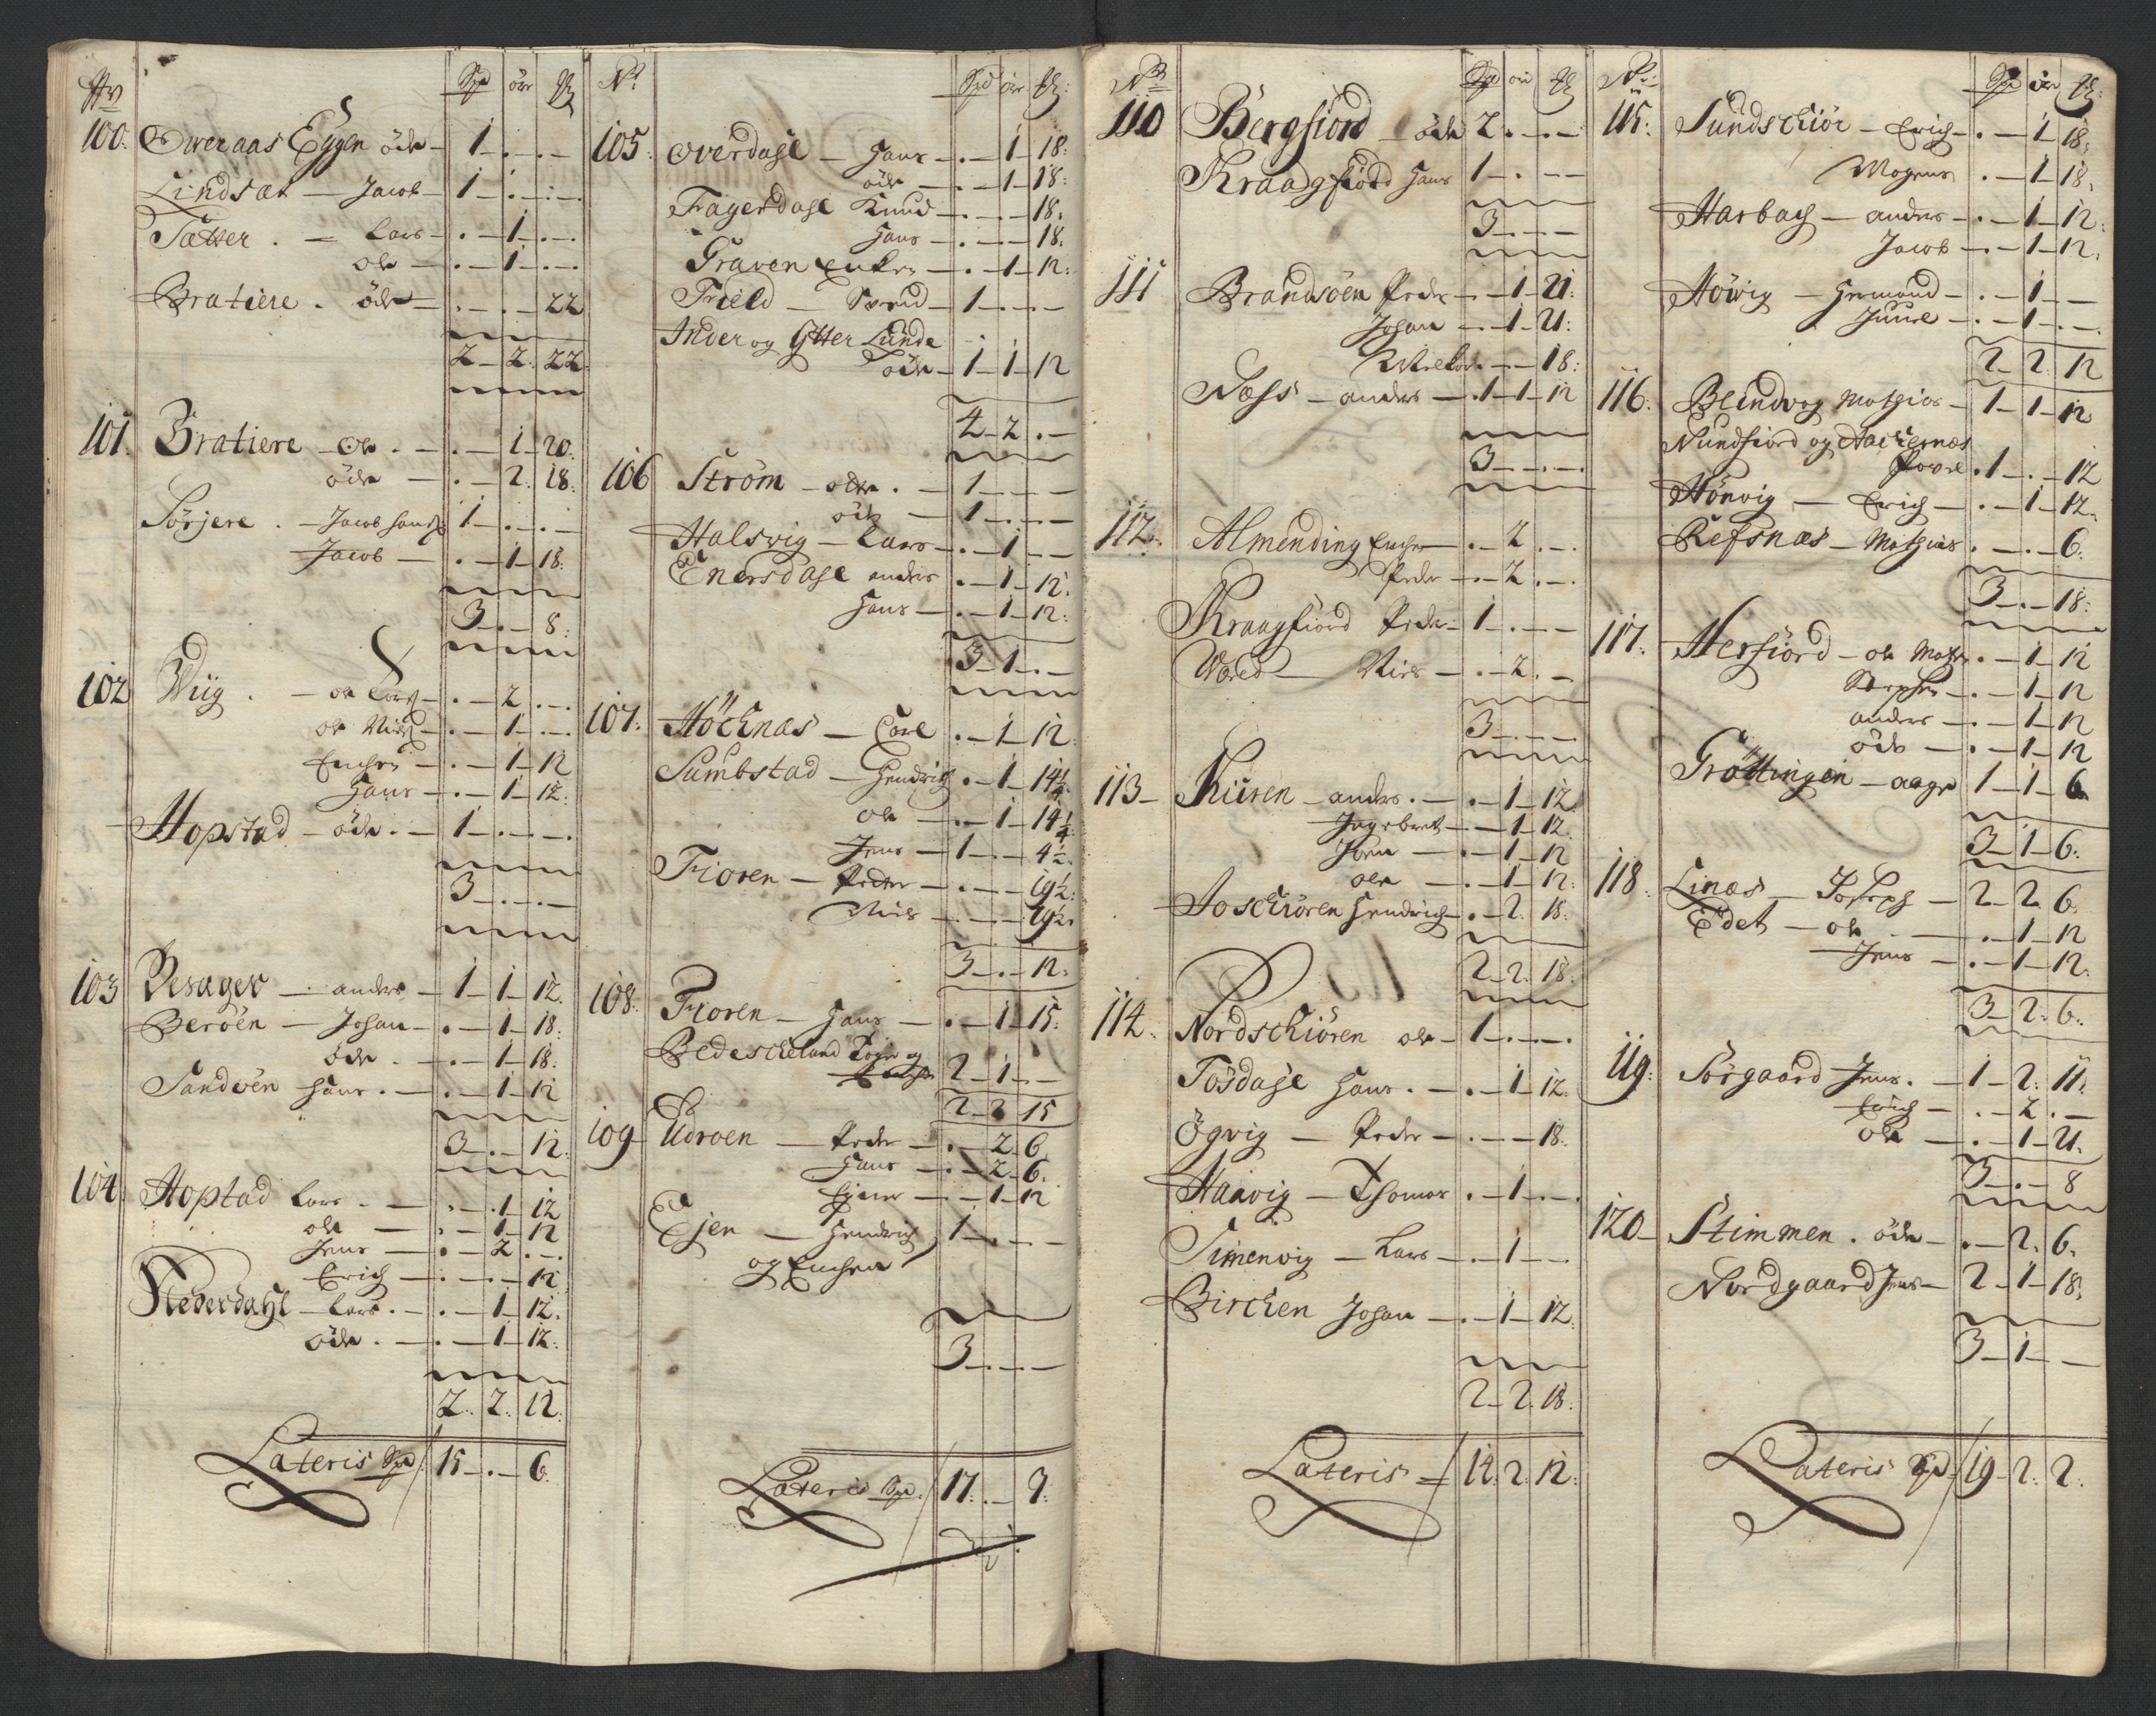 No Spd öre mk
100. Overaas Eggen öde - 1 - . - . -
Lindsæt - Jacob - 1 - . - . -
Sætter . - Lars - . - 1 - . -
ole - . - 1 - . -
Bratiere . öde - . - . - 22
2 - 2. 22.
101. Bratiere - ole . - . - 1 - 20.
öde - . - 2. 18.
Sörjere . - Jacob Hansen 1 - . - . -
Jacob - . - 1 - 18.
3 - . - 8.
102 Wiig . - ole Lars - . - 2 . - .
ole Niels - . - 1 - . -
Enchen - . - 1 - 12
Hans - . - 1 - 12.
Hopstad - öde . - 1 - . - . -
3 - . - . -
103 Besager - anders - 1 - 1 - 12.
Beröen - Johan - . - 1 - 18.
öde . - . - 1 - 18.
Sandöen Hans . - . - 1 - 12
3 - . - 12.
104. Hoptad Lars . - . - 1 - 12
ole - . - 1 - 12
Jens - . - 2 . - .
Erich - . - . - 12
Nederdahl - Lars . - . - 1 - 12.
öde . - . - 1 - 12.
2. 2. 12.
Lateris Spd. 15 - . - 6.
No Spd öre mk
105. Overdahl - Hans - . - 1 - 18.
öde - . - 1 - 18.
Fagerdahl Knud - . - . - 18.
Hans - . - . - 18.
Graven Enken - . - 1 - 12.
Field - Svend - 1 - . - . -
Inder og Ytter Lunde
öde - 1 - 1 - 12
4 - 2 . -
106 Ström - öde . - 1 - - -
öde - 1 - . - -
Halsvig - Lars - . - 1 - -
Enersdahl anders . - 1 - 12.
Hans - . - 1 - 12.
3 - 1 . -
107. Höcknæs - Carl . - 1 - 12.
Sumbstad - Hendrich . - 1 - 14¼.
ole - . - 1 - 14¼.
Jens - 1 - . - 4½.
Fioren - Peder - . - . - 19½.
Niels - . - . - 19½.
3 - . - 12.
108. Fioren - Hans - . - 1 - 15.
Bedescheland Tøger og
2 - 1 - -
2 - 2 15
109 Udroen - Peder - . - 2 - 6.
Hans - . - 2 - 6.
Ejner - . - 1 - 12
Ejen - Hendrich 1 - . - . -
og Enchen
3 - . - . -
Lateris Spd. 17. . - 9.
No Spd öre mk
110 Bergfiord - öde 2 . - . -
Kraagfiord Hans 1 - . - -
3 - . - -
111 Brandsöen Peder - . - 1 - 21.
Johan - . - 1 - 21.
- . - - 18.
Næss - anders - . 1 - 1 - 12
3 - . - . -
112. Almending Enchen - . - 2 . - .
Peder - . - 2 . - .
Kraagfiord Peder - 1 - . - -
Wæred - Niels - . - 2 . -
3 - . - . -
113 - Kiiren - anders . - . - 1 - 12
Ingebret - . - 1 - 12.
Jöen - . - 1 - 12
ole - . - 1 - 12.
Toschiören Hendrich - . - 2. 18.
2 - 2. 18.
114. Nordschiören ole - 1 - . - . -
Tosdahl Hans . - . - 1 - 12.
Ögvig - Peder - . - . - 18.
Haavig - Thomas . - 1 - . -
Simenvig - Lars - . - 1 - -
Birchen Johan - . - 1 - 12.
2 - 2. 18.
Lateris = 14. 2. 12.
No Spd öre mk
115. Sundschiör - Erich - . - 1 - 18.
Mogens . - 1 - 18.
Harbach - anders - . - 1 - 12.
Jacob - . - 1 - 12.
Höwig - Hermand - . - 1 - -
Juul - . - 1 - . -
2 - 2. 12
116. Blindvog Mathias - 1 - 1 - 12
Nundfiord og Aackernæs
Povel . 1 - . - 12
Hönvig - Erich - . - 1 - 12.
Refsnæs - Mathias . - . - 6.
3 - . - 18.
117. Herfiord - ole Mathes . - 1 - 12
Stephen - . - 1 - 12
anders - . - 1 - 12
öde - . - 1 - 12
Gröttingen - aage 1 - 1 - 6
3 - 1 - 6.
118. Linæs - Joseph - 2 - 2. 6.
Eidet - ole - . - 1 - 12
Jens - . - 1 - 12.
3 - 2. 6.
119. Sörgaard Jens . - 1 - 2. 11.
Erich - . - 2 . -
ole - . - 1 - 21.
3 - . - 8
120 - Stimmen . öde - . - 2. 6.
Nordgaard Jens - 2 - 1 - 18.
3 - 1 - -
Lateris Spd. 19 - 2. 2.